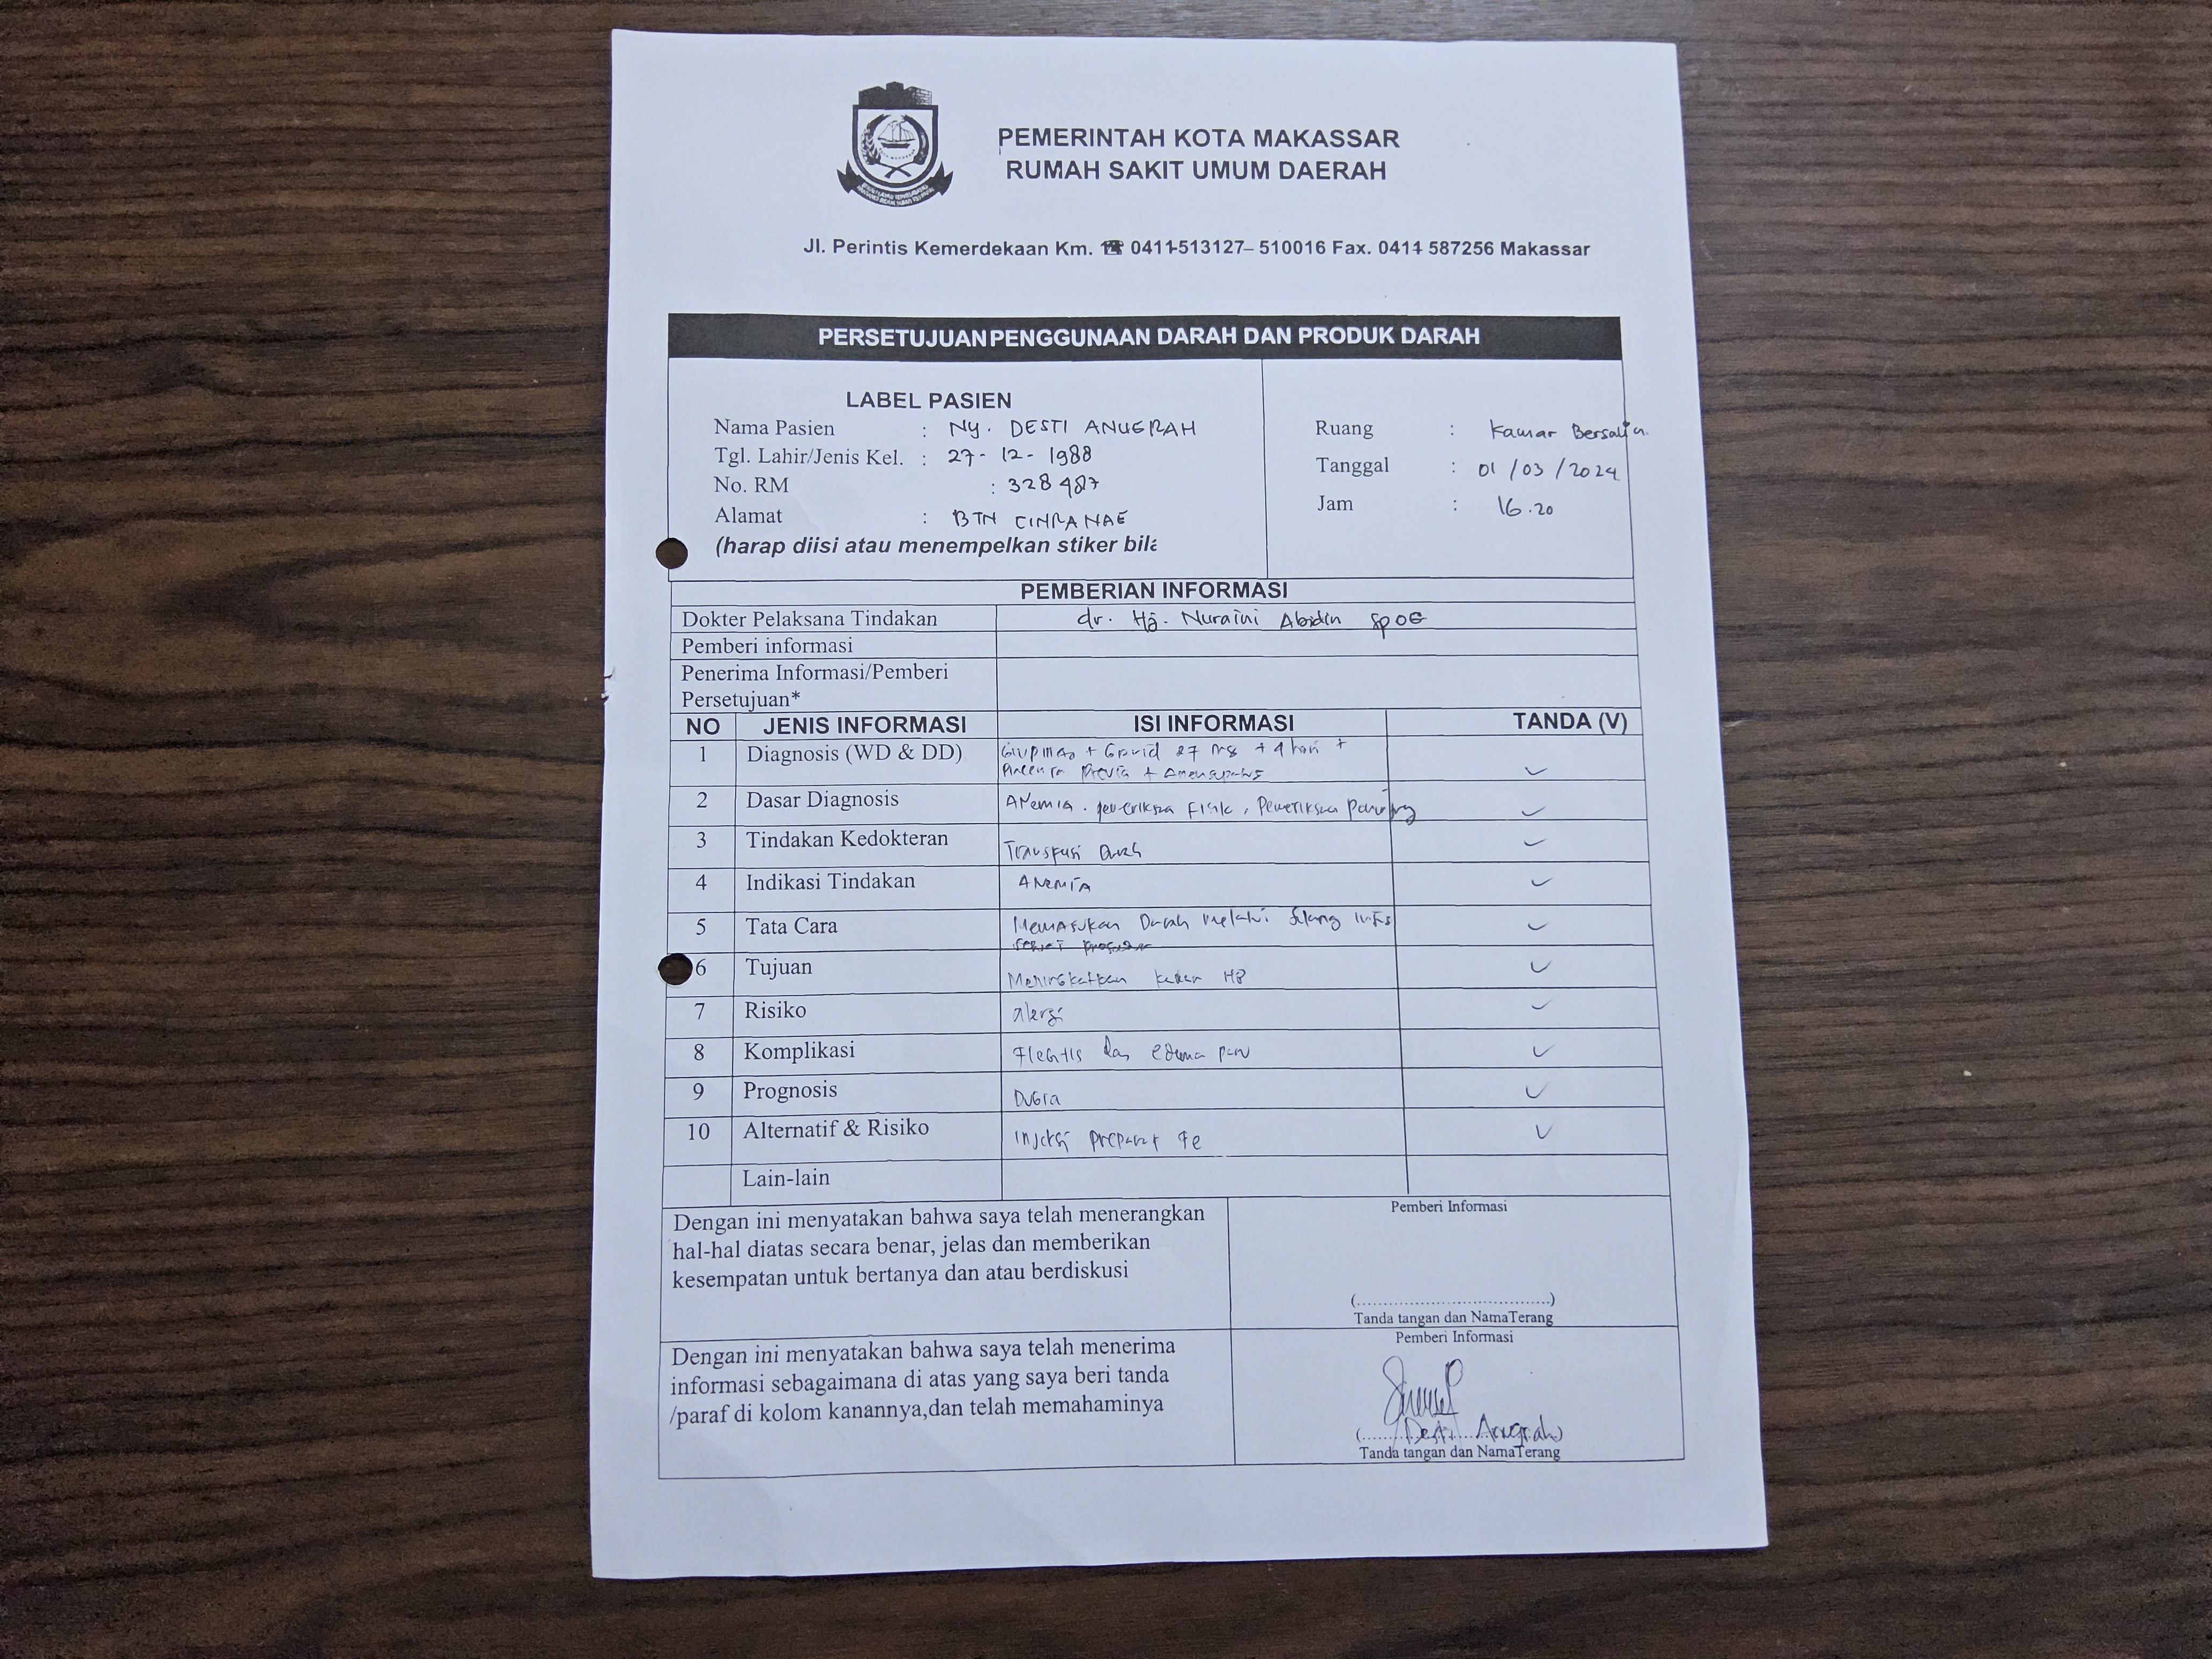 PEMERINTAH KOTA MAKASSAR
RUMAH SAKIT UMUM DAERAH
Jl. Perintis Kemerdekaan Km. ☎ 0411-513127– 510016 Fax. 0411 587256 Makassar
PERSETUJUAN PENGGUNAAN DARAH DAN PRODUK DARAH
LABEL PASIEN
Nama Pasien : NY. DESTI ANUGRAH
Tgl. Lahir/Jenis Kel. : 27-12-1988
No. RM : 328487
Alamat : BTN CINRANAE
(harap diisi atau menempelkan stiker bila
Ruang : Kamar Bersalin
Tanggal : 01/03/2024
Jam : 16.20
PEMBERIAN INFORMASI
Dokter Pelaksana Tindakan dr. Hj. Nuraini Abidin SpOG
Pemberi informasi
Penerima Informasi/Pemberi
Persetujuan*
NO JENIS INFORMASI ISI INFORMASI TANDA (V)
1 Diagnosis (WD & DD) + Gravid 27 + 4 hari +
Previa + ✓
2 Dasar Diagnosis Fisik, ✓
3 Tindakan Kedokteran Transfusi Darah ✓
4 Indikasi Tindakan Anemia ✓
5 Tata Cara Memasukan Darah melalui Selang infus ✓
6 Tujuan Meningkatkan kadar HB ✓
7 Risiko alergi ✓
8 Komplikasi dan edema paru ✓
9 Prognosis ✓
10 Alternatif & Risiko Injeksi preparat Fe ✓
Lain-lain
Dengan ini menyatakan bahwa saya telah menerangkan
hal-hal diatas secara benar, jelas dan memberikan
kesempatan untuk bertanya dan atau berdiskusi
Pemberi Informasi
(......................................)
Tanda tangan dan NamaTerang
Dengan ini menyatakan bahwa saya telah menerima
informasi sebagaimana di atas yang saya beri tanda
/paraf di kolom kanannya,dan telah memahaminya
Pemberi Informasi
(Desti Anugrah)
Tanda tangan dan NamaTerang